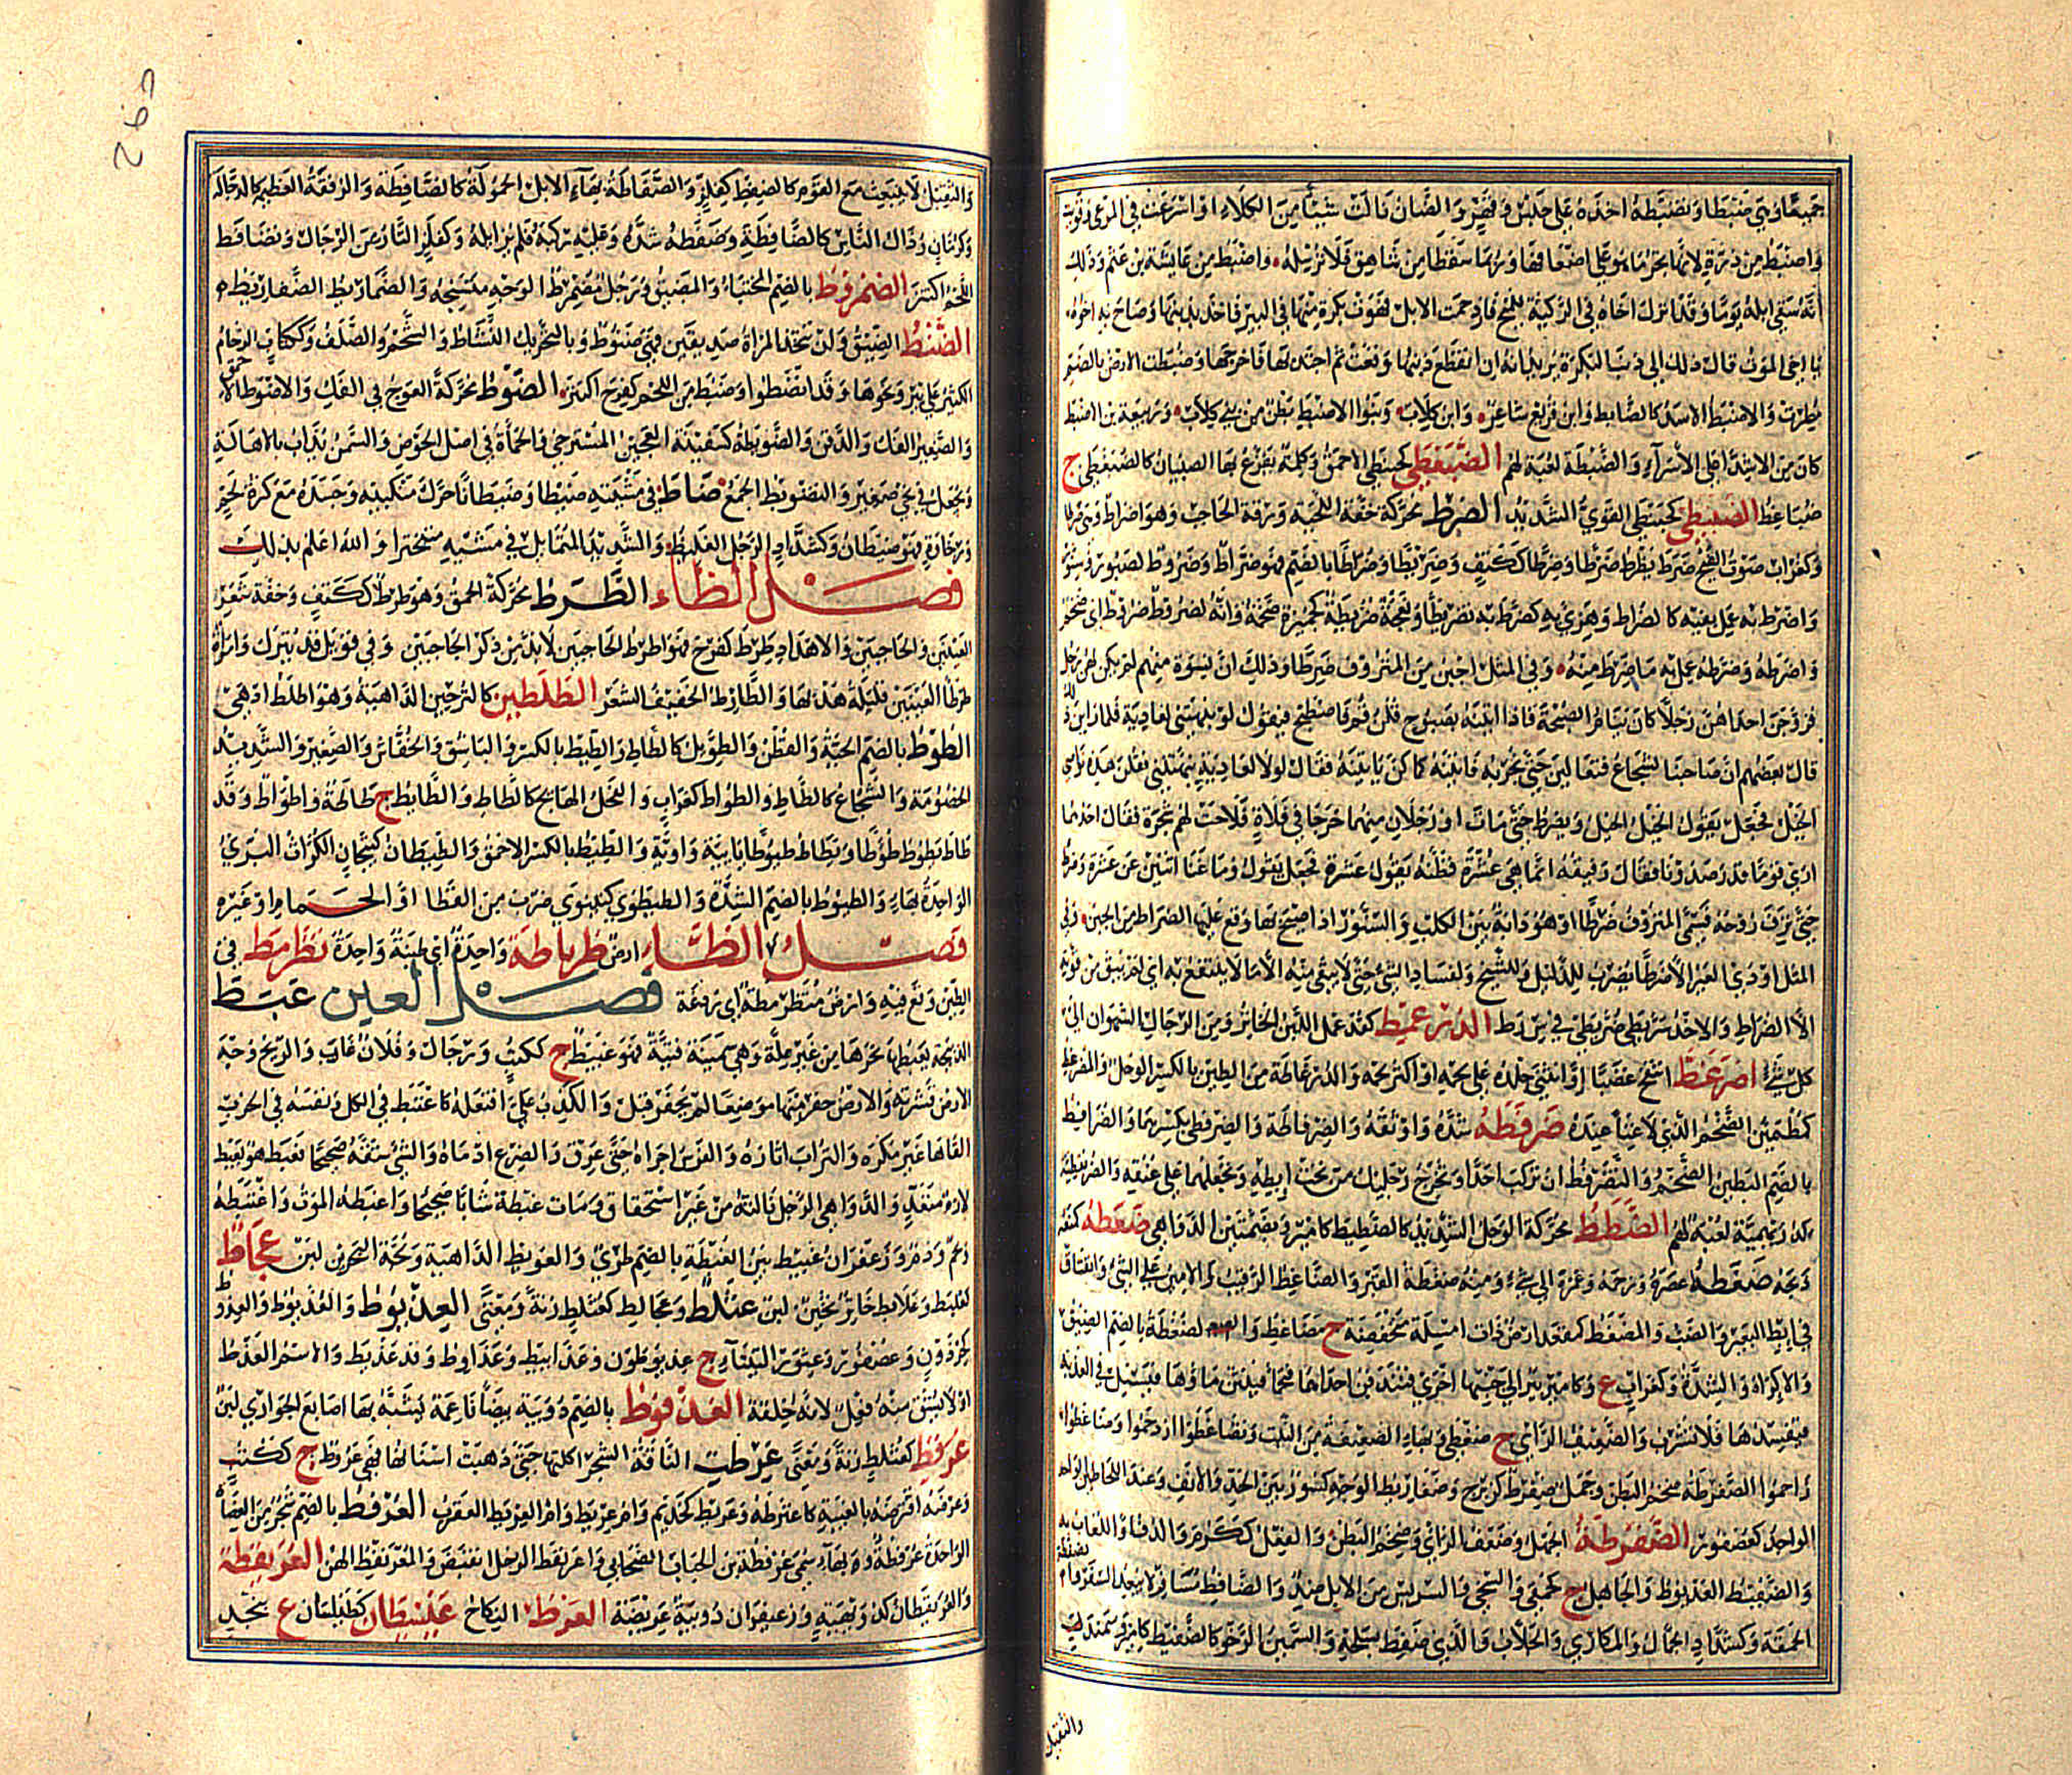 جميعًا وهي ضبطاء وتضبطه اخذه على حبس وقهر والضأن نالت شيئًا من الكلاء او اسرعت في المرعى وقويت
واضبط من ذرة لانها تجر ما هو على اضعافها وربما سقطا من شاهق فلا ترسله واضبط من عائشة بن عثم وذلك
انه سقى ابله يومًا وقد انزل اخاه في الركية للميح فازدحمت الابل فهوت بكرة منها في البير فاخذ بذنبها وصاح به اخوه
يا اخي الموت قال ذلك الى ذنب البكرة يريد انه ان انقطع ذنبها وقعت ثم اجتذبها فاخرجها وضبطت الارض بالضم
مطرت والاضبط الاسد كالضابط وابن قريع شاعر وابن كلاب وبنوا الاضبط بطن من بني كلاب وربيعة بن الاضبط
كان من الاشداء على الأسراء والضبطة لعبة لهم الضبغطى كحبنطى الاحمق وكلمة يفزع بها الصبيان كالضبغطى ج
ضباغط الضبنطى كحبنطى القوي الشديد الضرط محركة خفة اللحية ورقة الحاجب وهو اضرط وهي ضرطا
وكغراب صوت الفيخ ضرط يضرط ضرطا وضرطا ككتف وضريطا وضراطا بالضم فهو ضراط وضروط كصبور وسنور
واضرط به عمل بفيه كالضراط وهزئ به كضرط به تضريطا ونعجة ضريطة كجميزة ضخمة وانه لضروط ضروط اي ضخم
واضرطه وضرطه عمل به ما ضرط منه وفي المثل اجبن من المنزوف ضرطا وذلك ان نسوة منهم لم يكن لهن رجل
فزوجن احداهن رجلا كان ينام الصبحة فاذا اتينه بصبوح قلن قم فاصطبح فيقول لو نبهتنني لعادية فلما راين ذلك
قال بعضهم ان صاحبنا لشجاع فتعالين حتى نجربه فاتينه كما كن ياتينه فقال لولا لعادية نبهتنني فقلن هذه نواصي
الخيل فجعل يقول الخيل الخيل ويضرط حتى مات او رجلان منهم خرجا في فلاة فلاحت لهم شجرة فقال احدهما
ارى قوما قد رصدونا فقال رفيقه انما هي عشرة فظنه يقول عشرة فجعل يقول وما غناء اثنين عن عشرة وضرط
حتى نزف روحه فسمي المنزوف ضرطا او هو دابة بين الكلب والسنور اذا صيح بها وقع عليها الضراط من الجبن وفي
المثل اودى العير الا ضرطا يضرب للذليل وللشيخ ولفساد الشيء حتى لا يبقى منه الا ما لا ينتفع به اي لم يبق من قوته
الا الضراط والاخذ سريطى ضريطى في س ر ط الضرعمط كقذعمل اللبن الخاثر ومن الرجال الشهوان الى
كل شيء اضرغط انتفخ غضبا او انثنى جلده على لحمه او كثر لحمه والضرغاطة من الطين بالكسر الوحل والمضرغط
كمطمئن الضخم الذي لا غناء عنده ضرفطه شده واوثقه والضرفاطة والضرفطى بكسرهما والضرافط
بالضم البطين الضخم والتضرفط ان تركب احدا وتخرج رجليك من تحت ابطيه وتجعلهما على عنقه والضريفطية
كدريهمية لعبة لهم الضطط محركة الوحل الشديد كالضطيط كامير وبضمتين الدواهي ضعطه كمنعه
ذبحه ضغطه عصره وزحمه وغمزه الى شيء ومنه ضغطة القبر والضاغط الرقيب والامين على الشيء وانفتاق
في ابط البعير والضب والمضغط كمقعد ارض ذات امسلة منخفضة ج مضاغط والضغطة بالضم الضيق
والاكراه والشدة وكغراب ع وكامير بئر الى جنبها اخرى فتندفن احداهما فتحمأ فينتن ماؤها فيسيل في العذبة
فيفسدها فلا تشرب والضعيف الراي ج ضغطى وبهاء الضعيفة من النبت وتضاغطوا ازدحموا وضاغطوا
زاحموا الضفرطة ضخم البطن وجمل ضفرط كزبرج وضفاريط الوجه كسور بين الخد والانف وعند اللحاظين الواحد
الواحد كعصفور الضفرطة الجهل وضعف الراي وضخم البطن والفعل ككرم والدف او اللعاب به
والضفيط العذيوط والجاهل ج كحمقى والسخي والشرس من الابل ضد والضافط مسافر لا يبعد السفر
الحمقة وكشداد الجمال والمكاري والجلاب والذي ضفط بسلحه والسمين الرخو كالضفيط كامير وسمندل
والثقيل
والثقيل لا ينبعث مع القوم كالضفط كفلز والضفاطة بهاء الابل الحمولة كالضافطة والرفقة العظيمة كالدجالة
وكرمان رذال الناس كالضافطة وضفطه شده وعليه ركبه فلم يزايله وكفلز التار من الرجال وتضافط
اللحم اكتنز الضمروط بالضم المختبأ والمضيق ورجل مضمرط الوجه متشنجه والضماريط الضفاريط
الضنط الضيق ولن تتخذ المراة صديقين فهي ضنوط وبالتحريك النشاط والشحم والضلف وككتاب الزحام
الكثير على بئر ونحوها وقد انضنطوا وضنط من اللحم كفرح اكتنز الضوط محركة العوج في الفك والاضوط الاحمق
والصغير الفك والذقن والضويطة كسفينة العجين المسترخي والحمأة في اصل الحوض والسمن يذاب بالاهالة
ويجعل في نحي صغير والتضويط الجمع ضاط في مشيته ضيطا وضيطانا حرك منكبيه وجسده مع كثرة لحم
ورخاوة فهو ضيطان وكشداد الرجل الغليظ والشديد المتمايل في مشيه متبخترا والله اعلم بذلك
فصل الطاء الطرط محركة الحمق وهو طرط ككتف وخفة شعر
العينين والحاجبين والاهداب طرط كفرح فهو اطرط الحاجبين لا بد من ذكر الحاجبين وفي قول قد يترك وامراة
طرطاء العينين قليلة هدبها والطارط الخفيف الشعر الطلطين كالبرحين الداهية وهو اطلط ادهى
الطوط بالضم الحية والقطن والطويل كالطاط والطيط بالكسر والباشق والخفاش والصغير والشديد
الخصومة والشجاع كالطاط والطواط كغراب والفحل الهائج كالطاط والطائط ج طاطة واطواط وقد
طاط يطوط طؤطا ويطاط طيوطا يائية واوية والطيط بالكسر الاحمق والطيطان كتيجان الكراث البري
الواحدة بهاء والطيوط بالضم الشدة والطيطوى كنينوى ضرب من القطا او الحمام او غيره
فصل الظاء ارض ظرياطة واحدة اي طينة واحدة تظرمط في
الطين وقع فيه وارض متظرمطة اي ردغة فصل العين عبط
الذبيحة يعبطها نحرها من غير علة وهي سمينة فتية فهو عبيط ج ككتب ورجال وفلان غاب والريح وجه
الارض قشرته والارض حفر منها موضعا لم يحفر قبل والكذب علي افتعله كاعتبط في الكل ونفسه في الحرب
القاها غير مكره والتراب اثاره والفرس اجراه حتى عرق والضرع ادماه والشيء شقه صحيحا فعبط هو يعبط
لازم متعد والدواهي الرجل نالته من غير استحقاق ومات عبطة شابا صحيحا واعبطه الموت واعتبطه
ولحم ودم وزعفران عبيط بين العبطة بالضم طري والعوبط الداهية ولجة البحر لبن عجلط
كعلبط وعلابط خاثر ثخين لبن عثلط وعجالط كعثلط زنة ومعنى العذيوط والعذيوط والعذوط
كجردون وعصفور وعثور التيتاء ج عذيوطون وعذابيط وعذاويط وقد عذيط والاسم العذط
او لا يشتق منه فعل لانه خلقة العذفوط بالضم دويبة بيضاء ناعمة يشبه بها اصابع الجواري لبن
عرفط كعثلط زنة ومعنى عرطت الناقة الشجر اكلتها حتى ذهبت اسنانها فهي عروط ج ككتب
وعرضه اقترضه بالغيبة كاعترطه وعريط كحذيم وام عريط وام العريط العقرب العرفط بالضم شجر من العضاه
الواحدة عرفطة وبها سمي عرفطة بن الحباب الصحابي واعرنفط الرجل انقبض والمعرنفط الهن العريقطة
والعريقطان كذريهمة وزعيفران دويبة عريضة العزط النكاح عسنطان كطيلسان ع بنجد